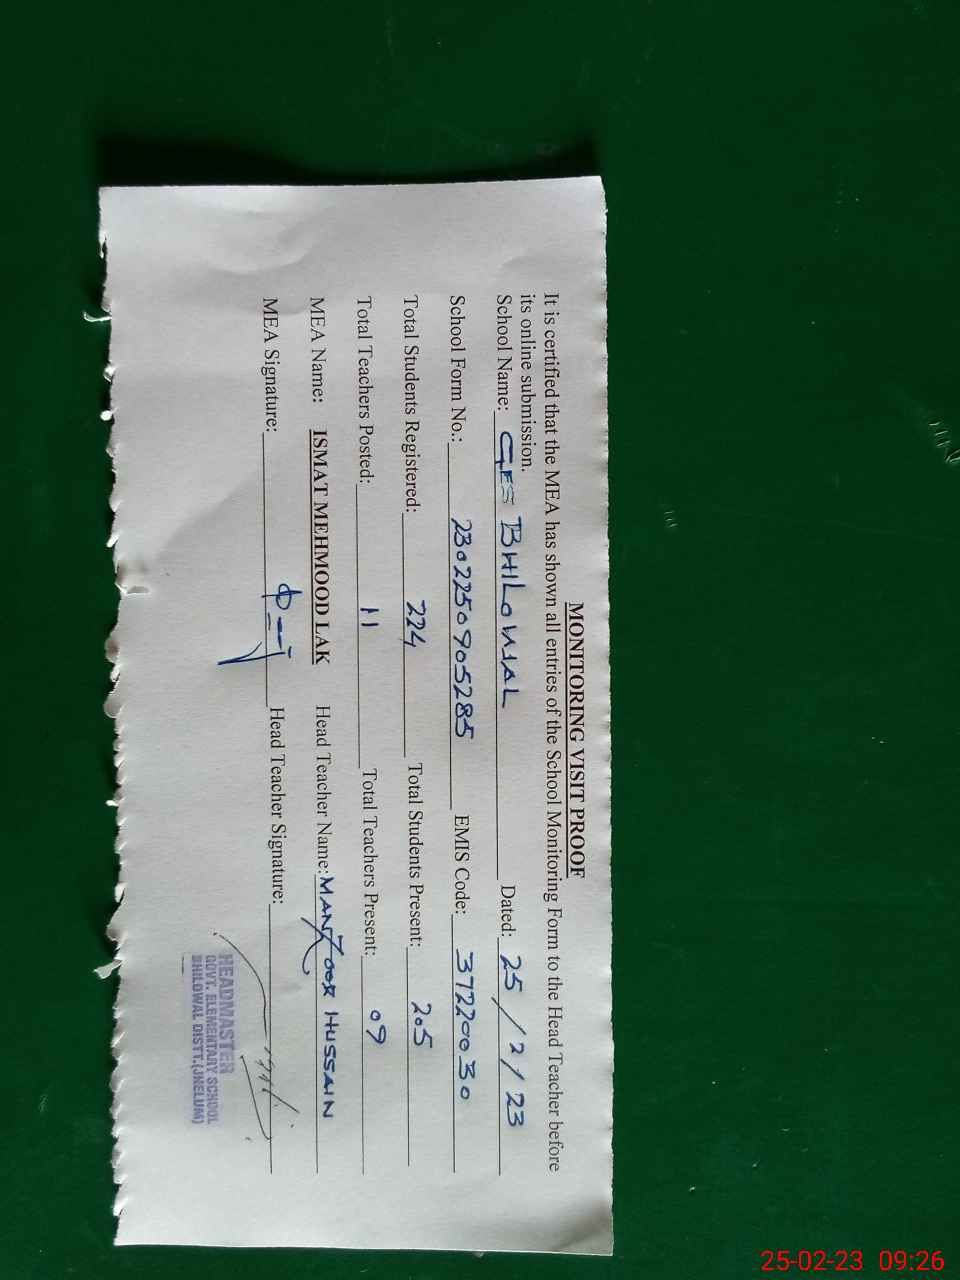 MONITORING VISIT PROOF
It is certified that the MEA has shown all entries of the School Monitoring Form to the Head Teacher before
its online submission.
School Name: GES BHILOWAL Dated: 25/2/23
School Form No.: 2302250905285 EMIS Code: 37220030
Total Students Registered: 224 Total Students Present: 205
Total Teachers Posted: 11 Total Teachers Present: 09
MEA Name: ISMAT MEHMOOD LAK Head Teacher Name: MANZOOR HUSSAIN
MEA Signature: Head Teacher Signature:
HEADMASTER
GOVT. ELEMENTARY SCHOOL
BHILOWAL DISTT.(JHELUM)
25-02-23 09:26